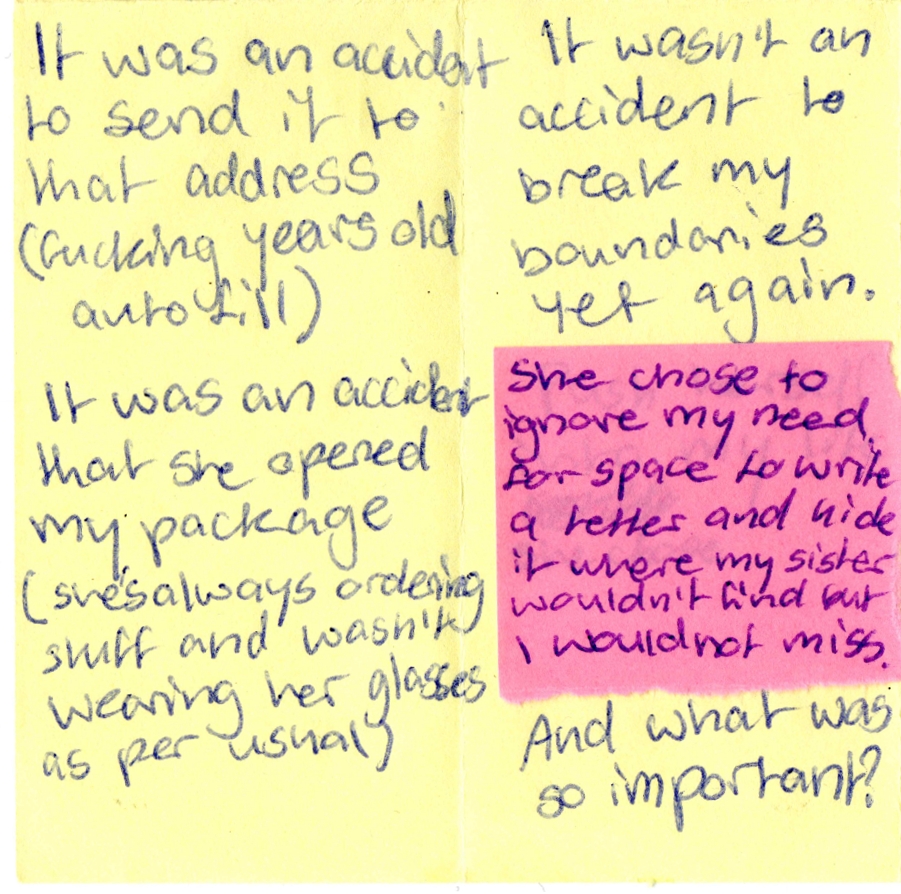 It was an accident
to send it to
that address
(fucking years old
autofill)
It was an accident
that she opened
my package
(she's always ordering
stuff and wasn't
wearing her glasses
as per usual)
It wasn't an
accident to
break my
boundaries
yet again.
She chose to
ignore my need
for space to write
a letter and hide
it where my sister
wouldn't find but
I would not miss.
And what was
so important?